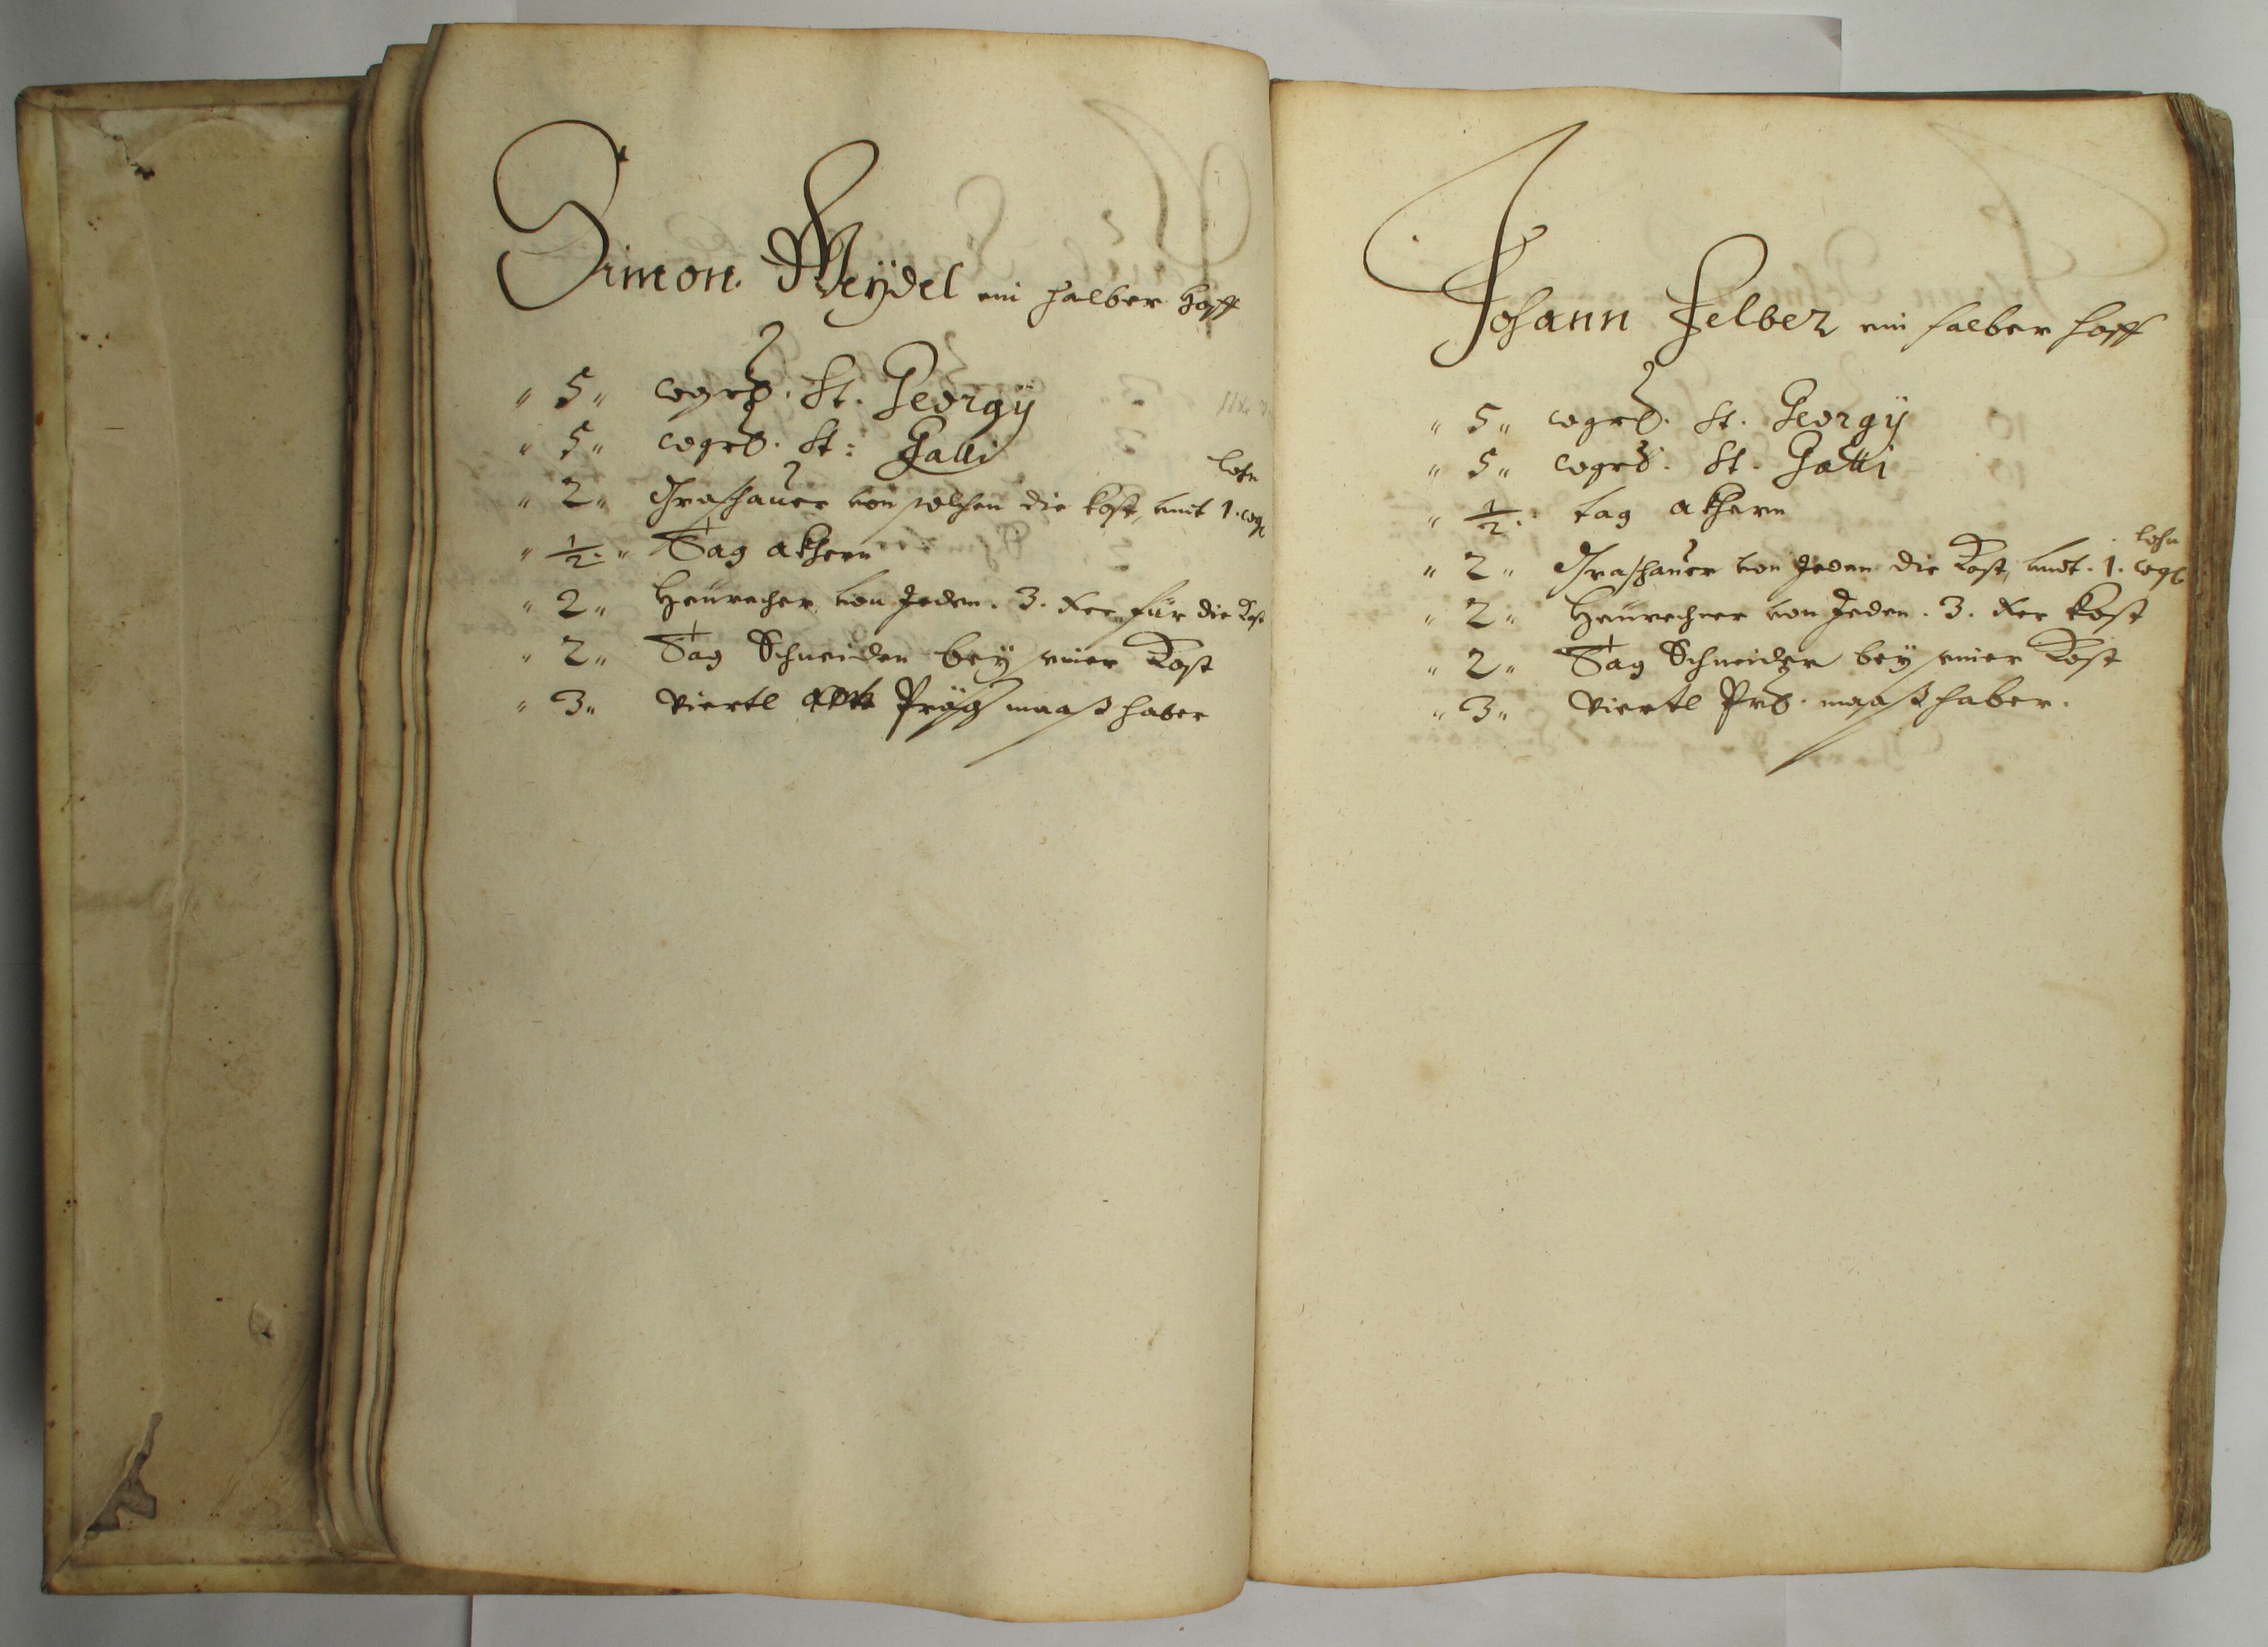 Simon Weÿdel ein halber Hoff
" 5 " wgrß. St. Georgÿ
" 5 " wgrß. St: Galli
" 2 " Grashauer von solchen die Kost, undt 1. wgl
lohn
" 1/2. " Tag akhern
" 2 " Heurecher von Jeden. 3. Xer für die Kost
" 2 " Tag Schneiden beÿ einer Kost
" 3 " Viertl Präg maaß haber
Johann Felber ein halber Hoff
" 5 " wgrß. St. Georgÿ
" 5 " wgrß. St. Galli
" 1/2. " tag akhern
" 2 " Grashauer von Jeden die Kost, undt. 1. wgl
lohn
" 2 " Heurechner von Jeden. 3. Xer Kost
" 2 " Tag Schneiden beÿ einer Kost
" 3 " Viertl Prß. maaß haber.